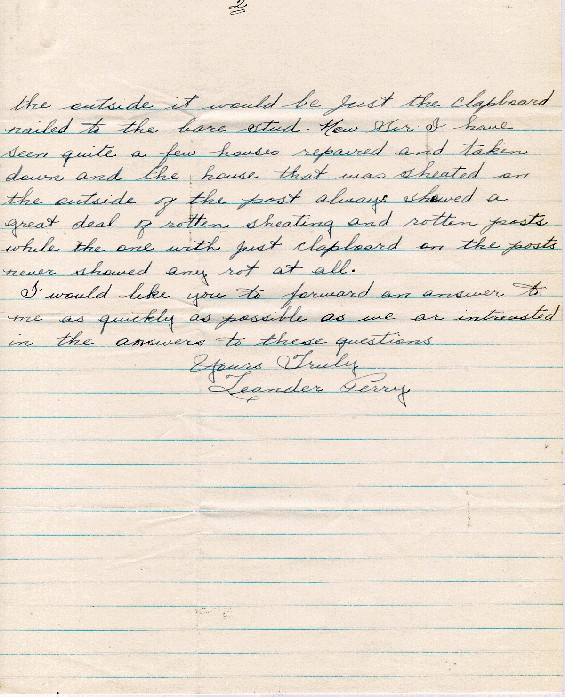 2
the outside it would be just the clapboard
nailed to the bare stud. Now Sir I have
seen quite a few houses repaired and taken
down and the house that was sheated on
the outside of the post always showed a
great deal of rotten sheating and rotten posts
while the one with just clapboard on the posts
never showed any rot at all.
I would like you to forward an answer to
me as quickly as possible as we ar intrested
in the answers to these questions
Yours Truly
Leander Perry